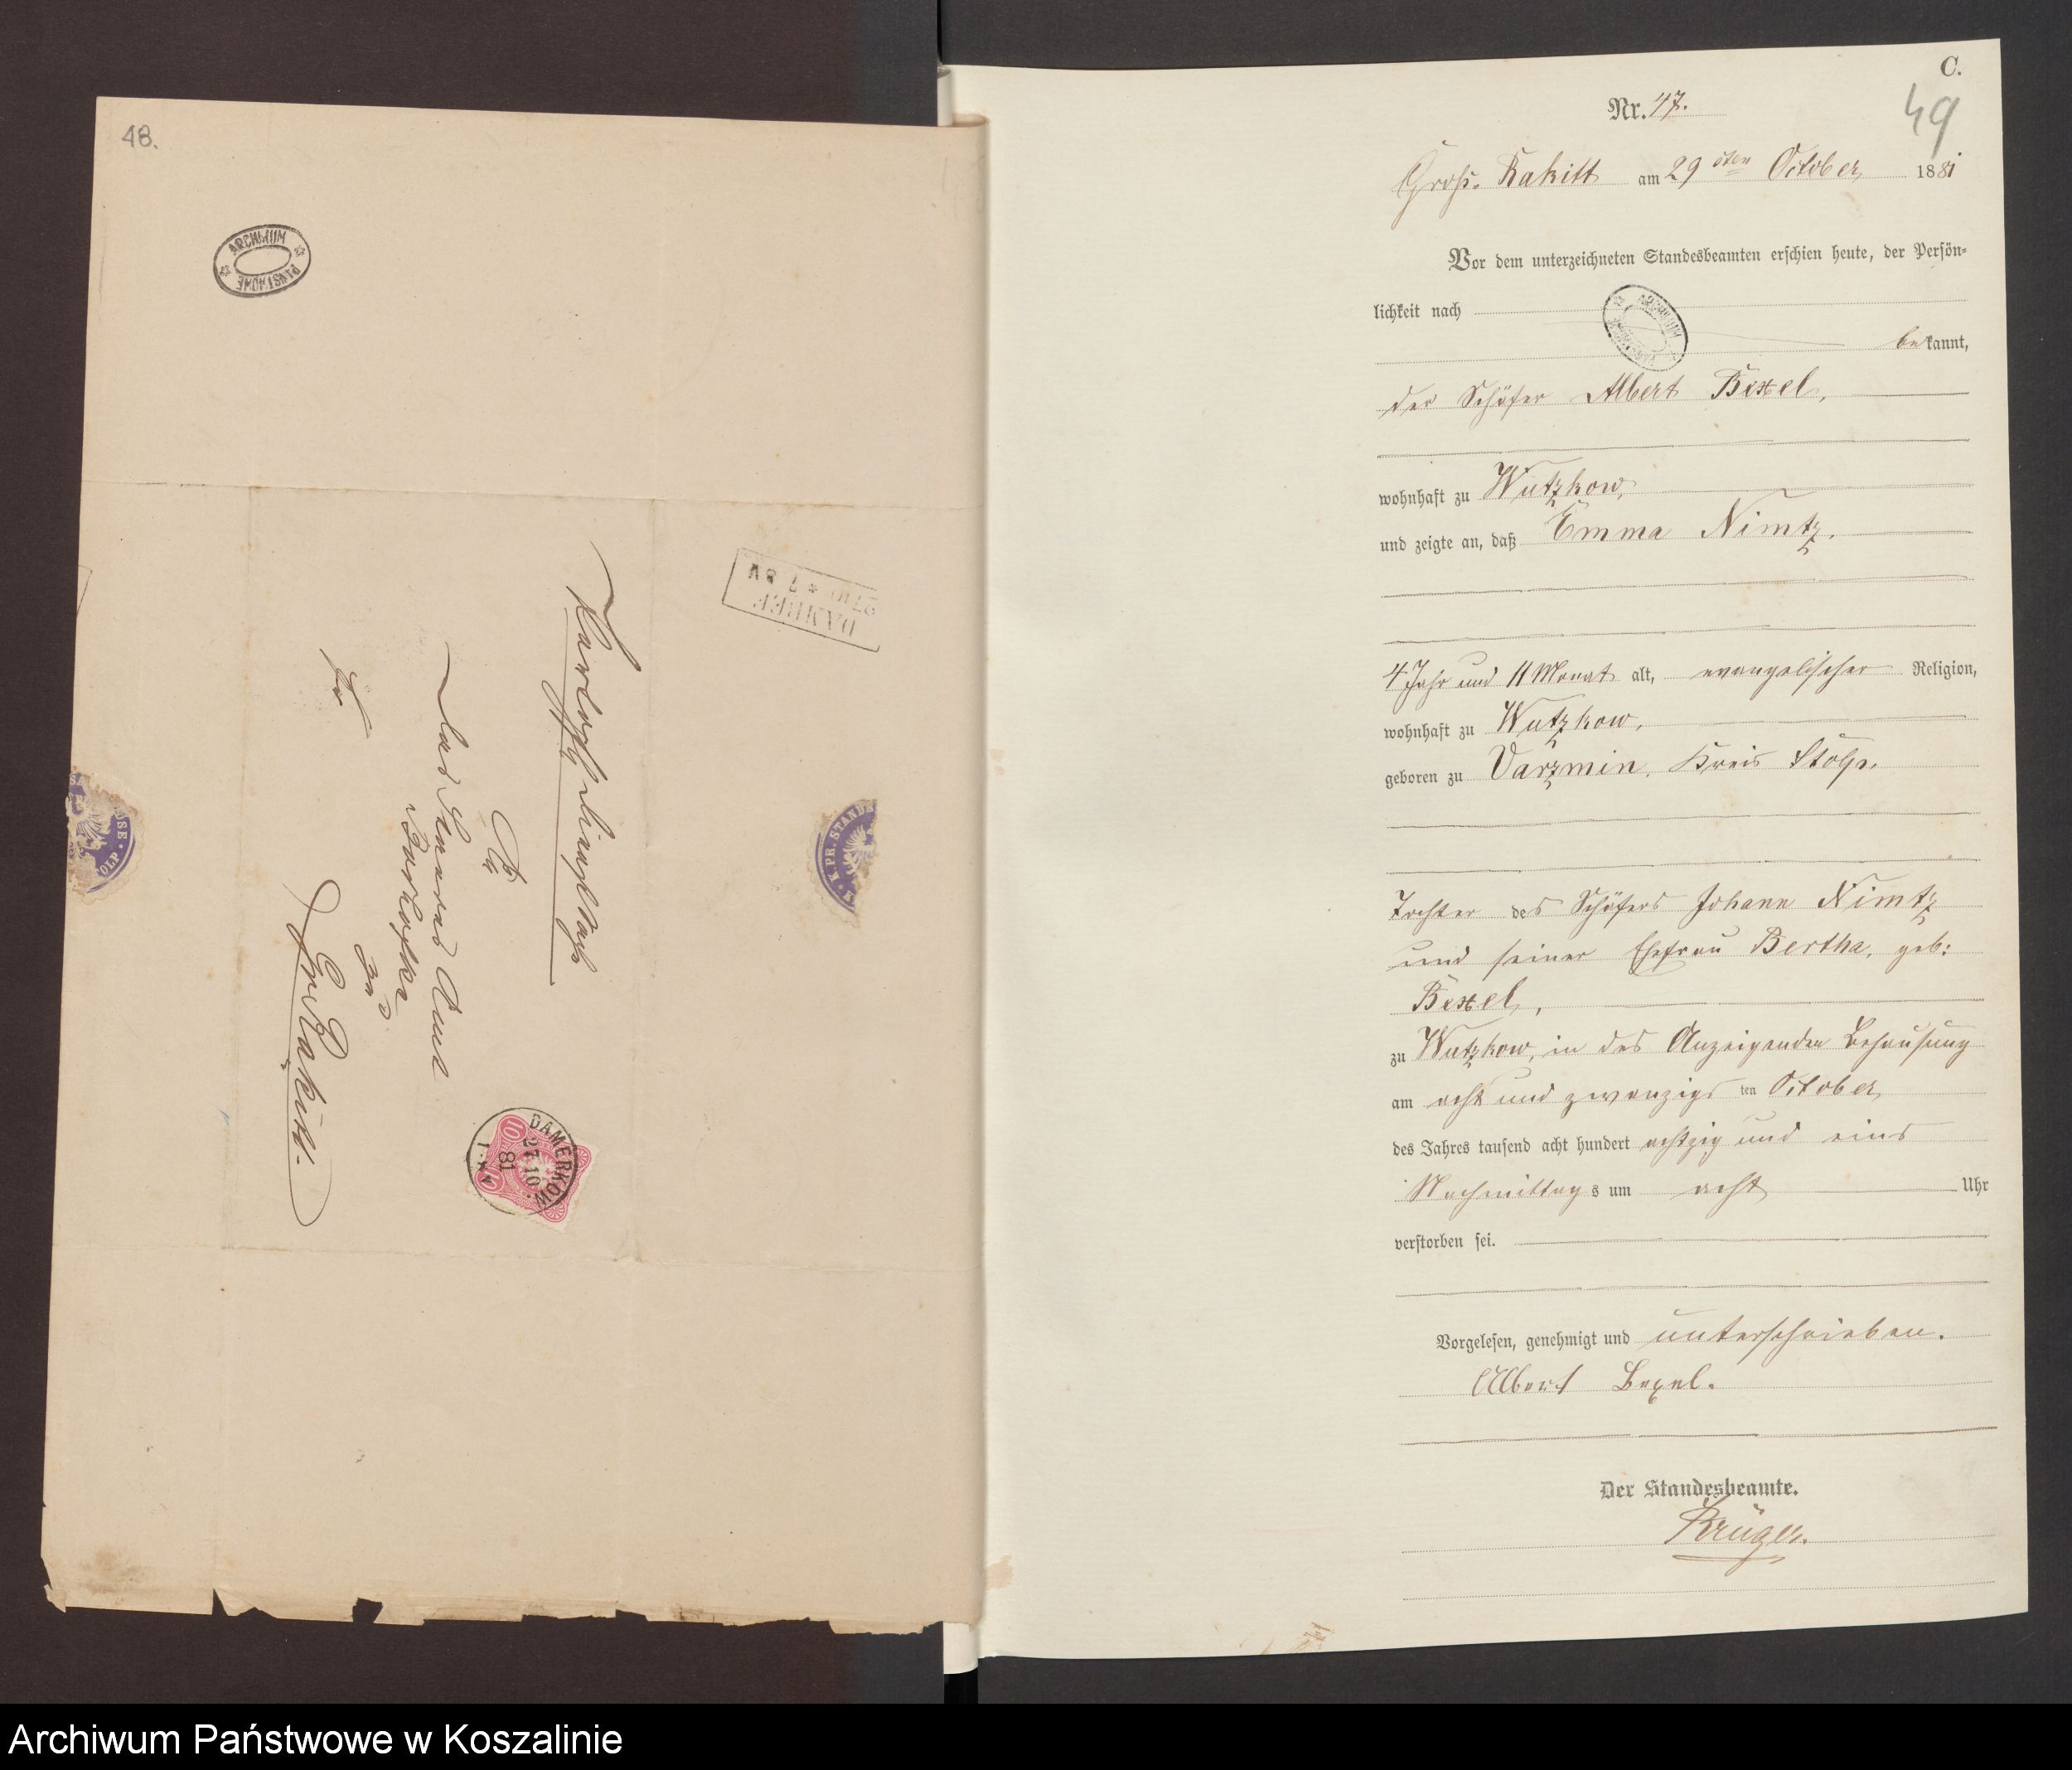 48.
ARCHIWUM
PAŃSTWOWE
DAMERKOW
27 10
81
K. PR. STANDE
OLP.
An
das Standes Amt
zu
Gr Rakitt.
C.
Nr. 47.
49
Gross-Rakitt am 29sten October 1881
Vor dem unterzeichneten Standesbeamten erschien heute, der Persön-
lichkeit nach
bekannt,
der Schäfer Albert Bexel,
wohnhaft zu Wutzkow,
und zeigte an, daß Emma Nimtz,
4 Jahr und 11 Monat alt, evangelischer Religion,
wohnhaft zu Wutzkow,
geboren zu Varzmin, Kreis Stolp,
Tochter des Schäfers Johann Nimtz
und seiner Ehefrau Bertha, geb:
Bexel,
zu Wutzkow, in des Anzeigenden Behausung
am acht und zwanzigsten October
des Jahres tausend acht hundert achtzig und eins
Nachmittags um acht Uhr
verstorben sei.
Vorgelesen, genehmigt und unterschrieben.
Albert Bexel.
Der Standesbeamte.
Krüger.
Archiwum Państwowe w Koszalinie